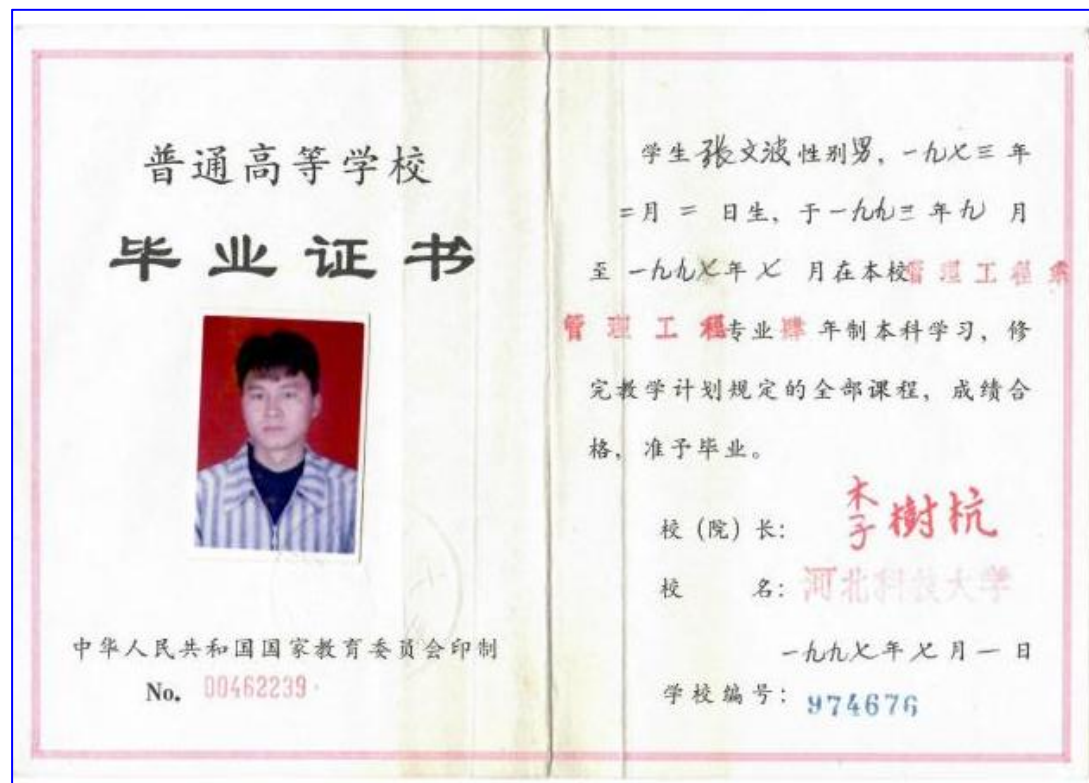 普通高等学校
毕业证书
中华人民共和国国家教育委员会印制
No. 00462239
学生张文波性别男，一九七三年
二月二日生，于一九九三年九月
至一九九七年七月在本校管理工程系
管理工程专业肆年制本科学习，修
完教学计划规定的全部课程，成绩合
格，准予毕业。
校（院）长：李树杭
校名：河北科技大学
一九九七年七月一日
学校编号：974676